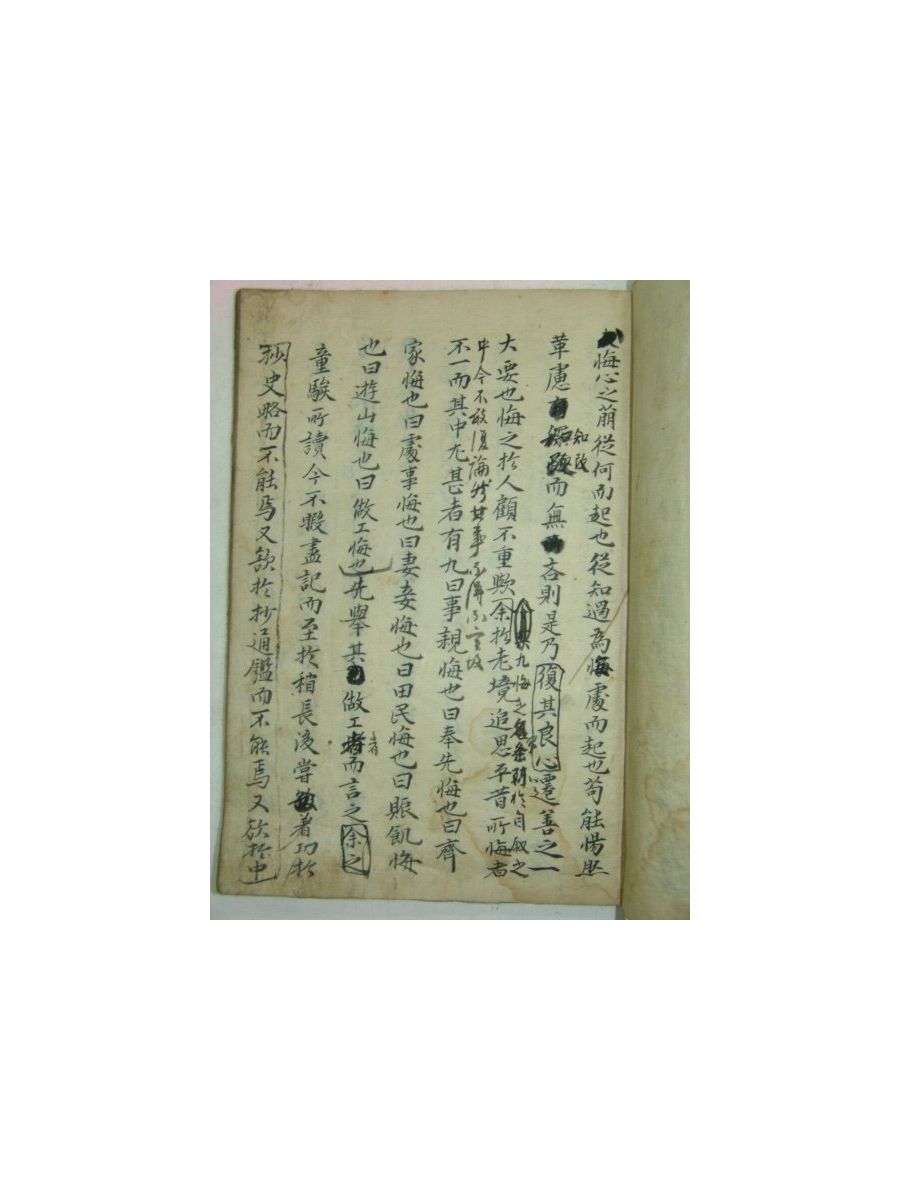 悔心之萠從何而起也從知過為悔處而起也苟能惕㘸
革慮知改而無吝則是乃復其良心遷善之一
大要也悔之於人顧不重歟余於老境追思平昔所悔者
九悔之於自叙之
中今不敢復論
不一而其中尤甚者有九曰事親悔也曰奉先悔也曰齊
家悔也曰處事悔也曰妻妾悔也曰田民悔也曰賑飢悔
也曰遊山悔也曰做工悔也先舉其做工者而言之余之
童騃所讀今不暇盡記而至於稍長後嘗着功於
抄史略而不能焉又欲於抄通鑑而不能焉又欲於中